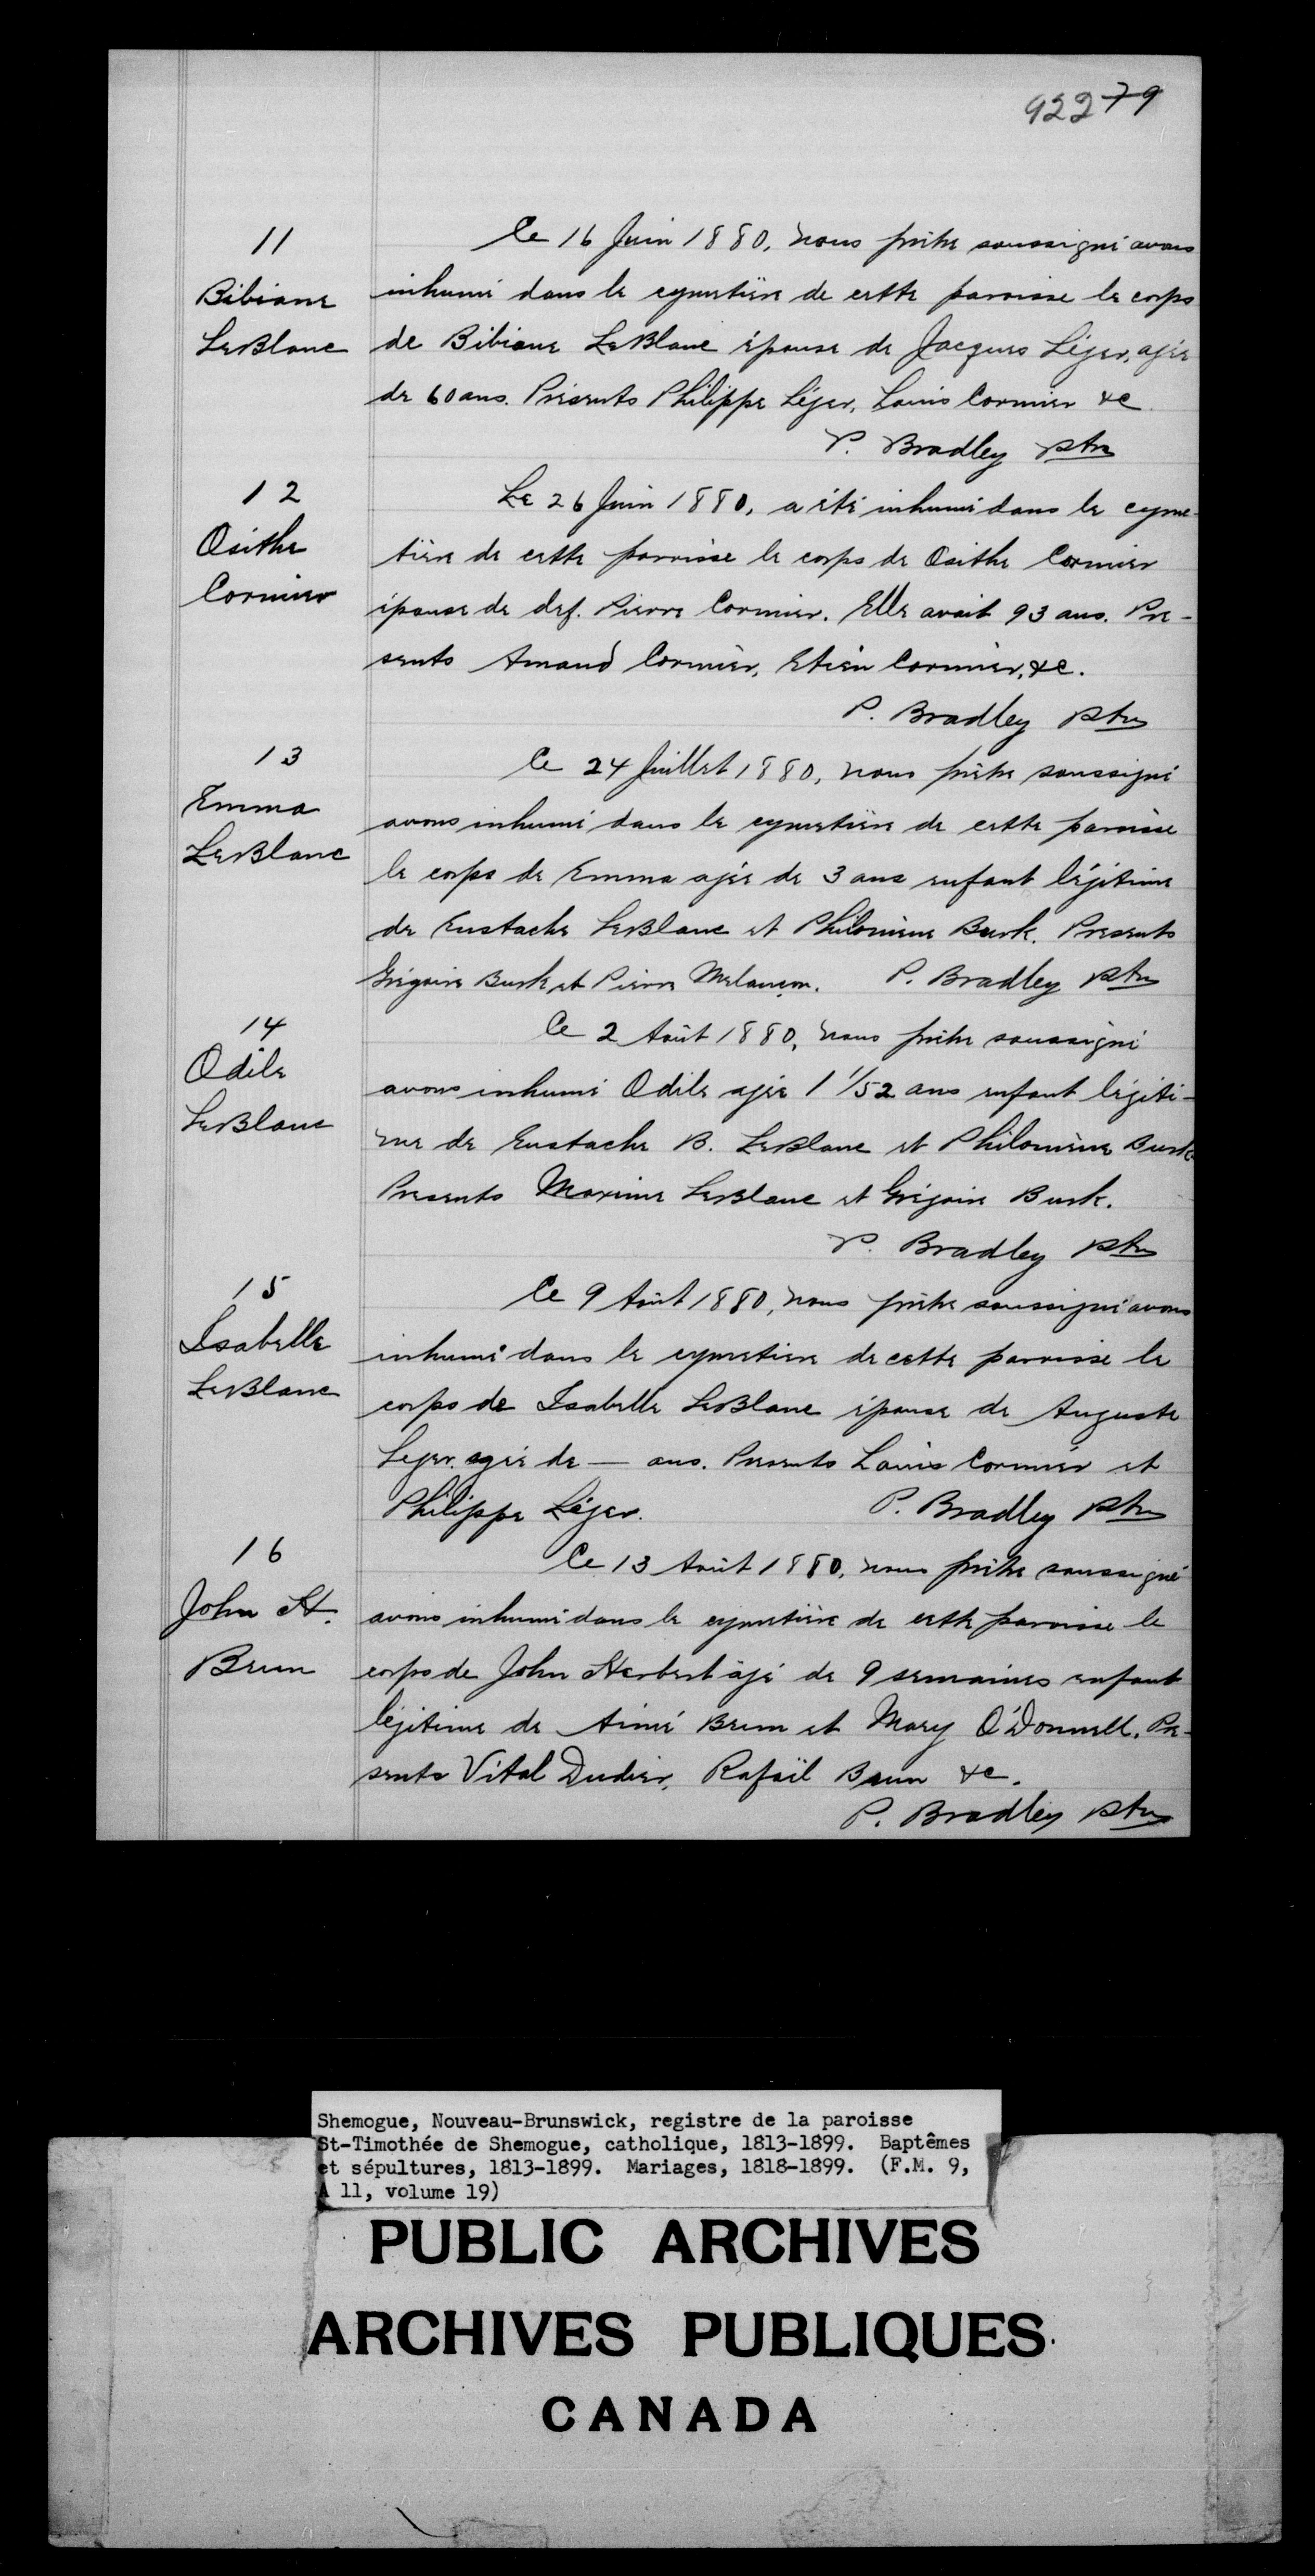 92279
11
Bibiane
LeBlanc
Ce 16 Juin 1880, nous prêtre soussigné avons
inhumé dans le cymetière de cette paroisse le corps
de Bibiane LeBlanc épouse de Jacques Léger, agée
de 60 ans. Présents Philippe Léger, Louis Cormier &c
P. Bradley ptre
12
Osithe
Cormier
Le 26 Juin 1880, a été inhumé dans le cyme-
tière de cette paroisse le corps de Osithe Cormier
épouse de def. Pierre Cormier. Elle avait 93 ans. Pre-
sents Amand Cormier, Etién Cormier, &c.
P. Bradley ptre
13
Emma
LeBlanc
Ce 24 Juillet 1880, nous prêtre soussigné
avons inhumé dans le cymetière de cette paroisse
le corps de Emma agée de 3 ans enfant légitime
de Eustache LeBlanc et Philomène Burk. Presents
Grégoire Burk et Pierre Melançon. P. Bradley ptre
14
Odile
LeBlanc
Ce 2 Août 1880, nous prêtre soussigné
avons inhumé Odile agée 1 1/52 ans enfant légiti-
me de Eustache B. LeBlanc et Philomène Burk
Presents Maxime LeBlanc et Grégoire Burk.
P. Bradley ptre
15
Isabelle
LeBlanc
Ce 9 Août 1880, nous prêtre soussigné avons
inhumé dans le cymetiere de cette paroisse le
corps de Isabelle LeBlanc épouse de Auguste
Leger. agée de — ans. Presents Louis Cormier et
Philippe Léger. P. Bradley ptre
16
John H.
Brun
Ce 13 Août 1880, nous prêtre soussigné
avons inhumé dans le cymetière de cette paroisse le
corps de John Herbert âgé de 9 semaines enfant
légitime de Aimé Brun et Mary O'Donnell. Pre-
sents Vital Dudier, Rafaïl Brun &c.
P. Bradley ptre
Shemogue, Nouveau-Brunswick, registre de la paroisse
St-Timothée de Shemogue, catholique, 1813-1899. Baptêmes
et sépultures, 1813-1899. Mariages, 1818-1899. (F.M. 9,
A 11, volume 19)
PUBLIC ARCHIVES
ARCHIVES PUBLIQUES
CANADA